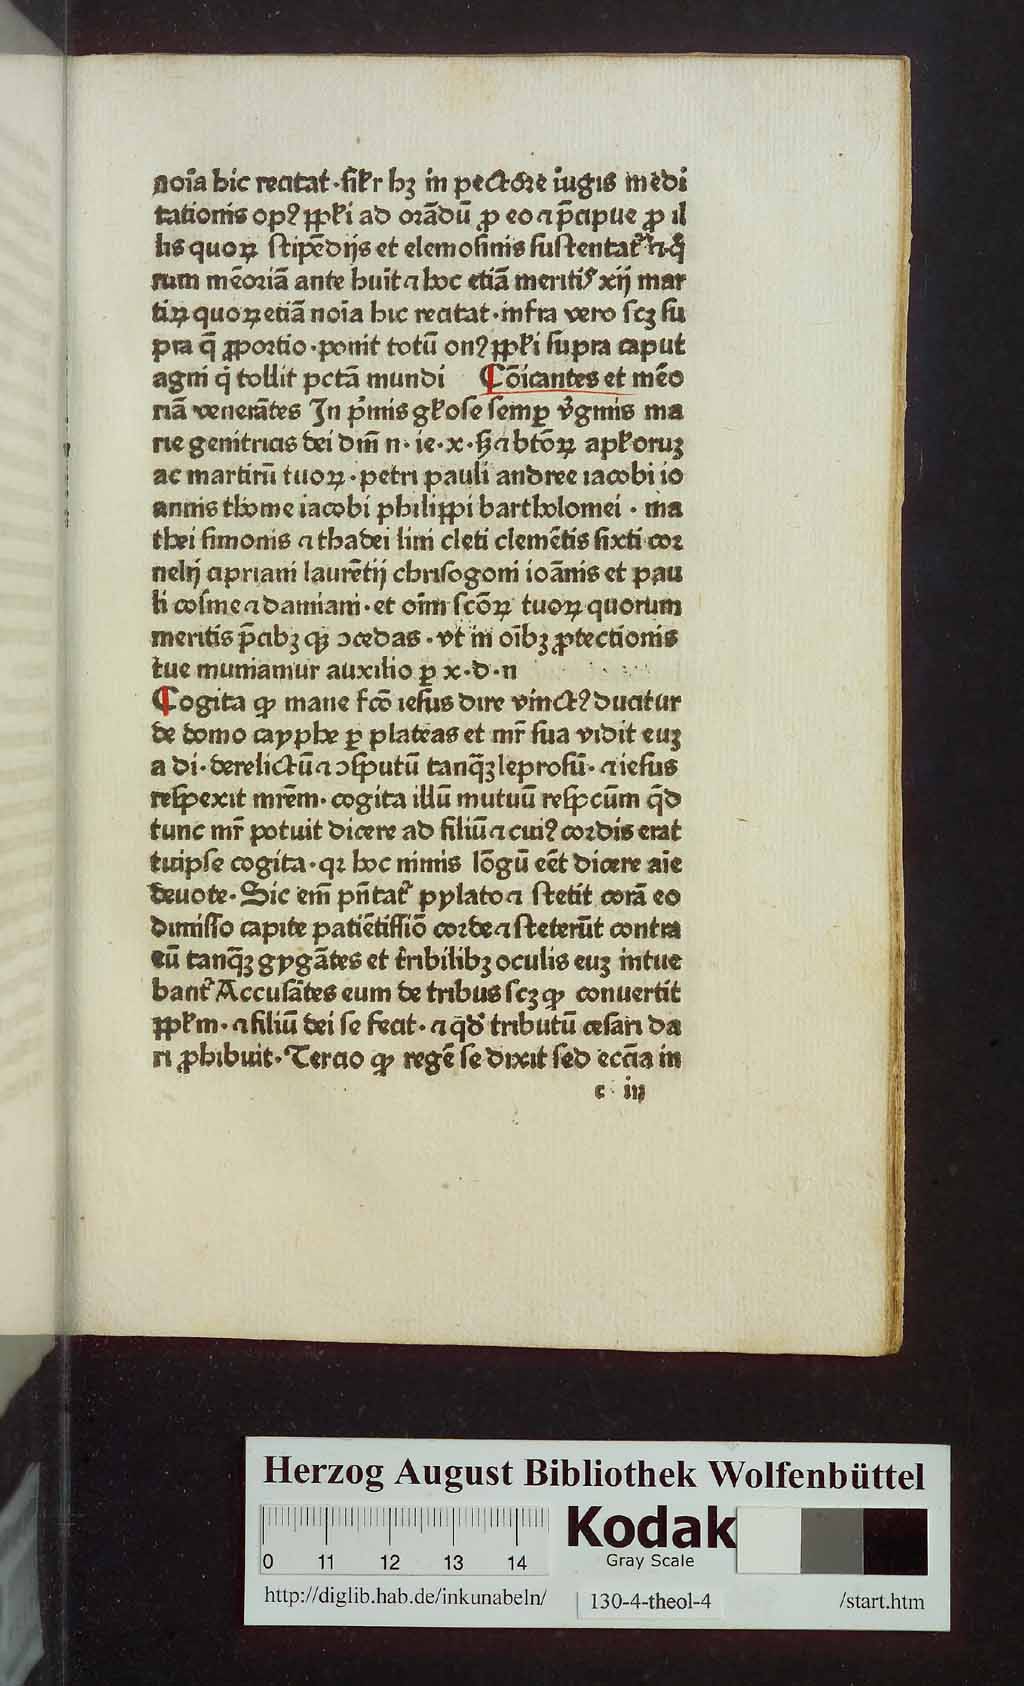 noīa hic recitat · silʼr hʒ in pectore iugis medi
tationis opꝰ ppłi ad orādū ꝓ eo ⁊ p̄cipue ꝓ il
lis quoꝝ stipēdijs et elemosinis sustentat᷑ ⁊ q̄
rum mēoriā ante huit ⁊ hoc etiā meritis xij mar
tiꝝ quoꝝ etiā noīa hic recitat · infra vero scʒ su
pra q̄ ꝓportio · ponit totū onꝰ ppłi supra caput
agni q̇ tollit pctā mundi Cōicantes et mēo
riā venerātes In pʼmis głose semꝑ v̓ginis ma
rie genitricis dei dn̄i n · ie · x · sʒ ⁊ btōꝝ apłoruʒ
ac martirū tuoꝝ · petri pauli andree iacobi io
annis thome iacobi philippi bartholomei · ma
thei simonis ⁊ thadei lini cleti clemētis sixti cor
nelij cipriani laurētij chrisogoni ioānis et pau
li cosme ⁊ damiani · et oīm scōꝝ tuoꝝ quorum
meritis p̄cibʒ qʒ ↄcedas · vt in oībʒ ꝓtectionis
tue muniamur auxilio ꝑ x · d · n
Cogita ꝙ mane fcō iesus dire vinctꝰ ducitur
de domo cayphe ꝑ plateas et mr̄ sua vidit euʒ
a di · derelictū ⁊ ↄsputū tanq̄ʒ leprosū · ⁊ iesus
respexit mrēm · cogita illū mutuū respcūm q̄d
tunc mr̄ potuit dicere ad filiū ⁊ cuiꝰ cordis erat
tuipse cogita · qꝛ hoc nimis lōgū eēt dicere aīe
deuote · Sic em̄ pn̄tat᷑ pylato ⁊ stetit corā eo
dimisso capite patiētissīō corde ⁊ steterūt contra
eū tanq̄ʒ gygātes et tr̓ibilibʒ oculis euʒ intue
bant᷑ Accusātes eum de tribus scʒ ꝙ conuertit
ppłm · ⁊ filiū dei se fecit · ⁊ qd̓ tributū cesari da
ri ꝓhibuit · Tercio ꝙ regē se dixit sed ecc̄ia in
c iij
Herzog August Bibliothek Wolfenbüttel
0 11 12 13 14
Kodak
Gray Scale
http://diglib.hab.de/inkunabeln/ 130-4-theol-4 /start.htm